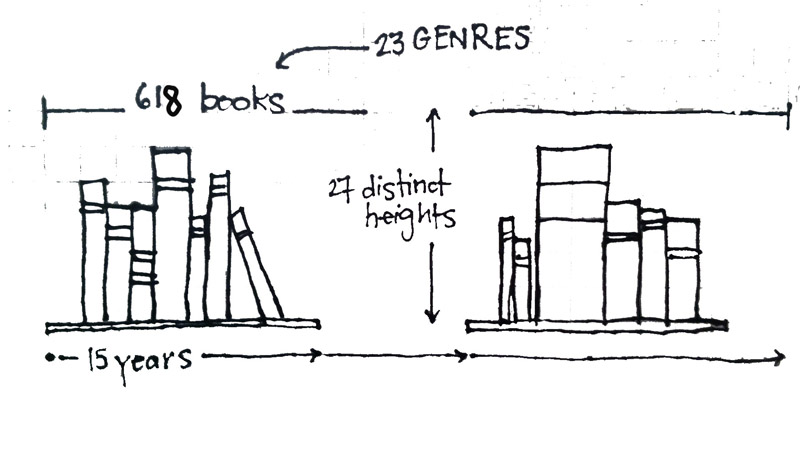 23 GENRES
618 books
27 distinct
heights
15 years